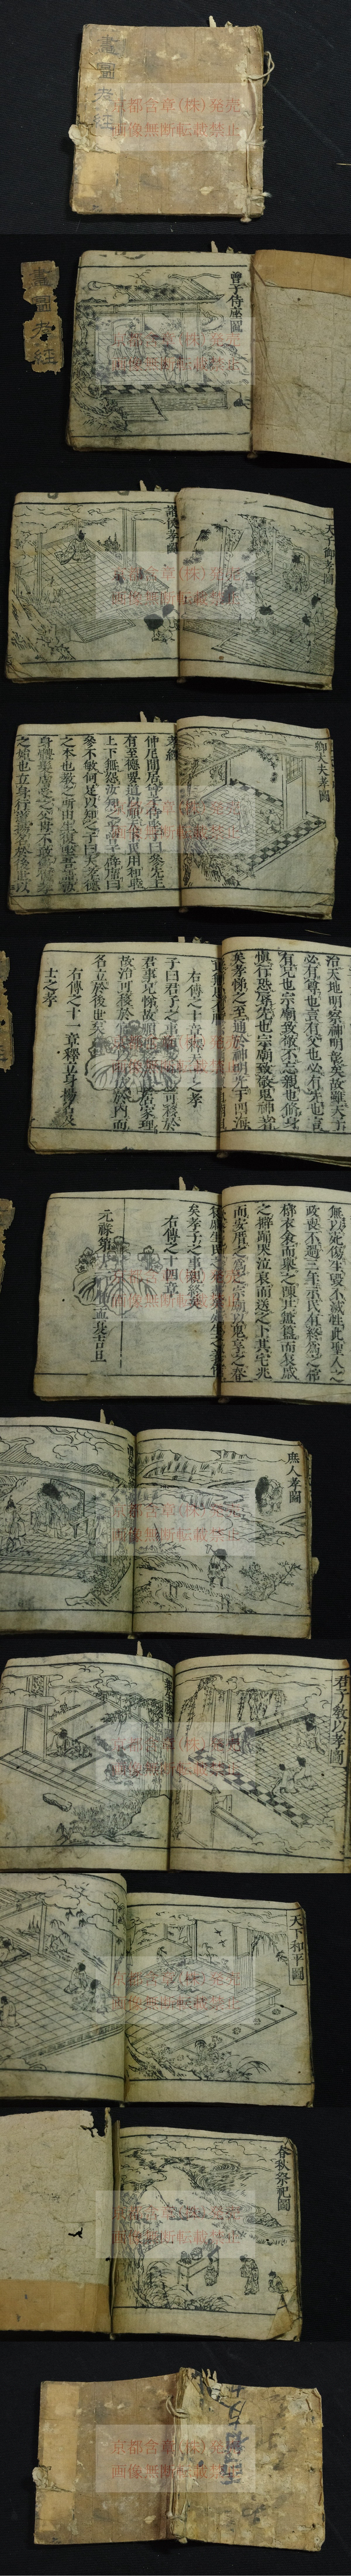 畫圖孝經
京都含章(株)発売
画像無断転載禁止
曾子侍座圖
畫圖孝經
京都含章(株)発売
画像無断転載禁止
天子即孝圖
諸侯孝圖
京都含章(株)発売
画像無断転載禁止
卿大夫孝圖
孝經
仲尼間居曾子侍座子曰參先王
有至德要道以順天下民用和睦
上下無怨汝知之乎曾子辟席曰
參不敏何足以知之子曰夫孝德
之本也教之所由生復坐吾語汝
身體髮膚受之父母不敢毀傷孝
之始也立身行道揚名於後世以
京都含章(株)発売
画像無断転載禁止
治天地明察神明彰矣故雖天子
必有尊也言有父也必有先也言
有兄也宗廟致敬不忘親也脩身
慎行恐辱先也宗廟致敬鬼神著
矣孝悌之至通於神明光于四海
右傳之十章
子曰君子之事親孝故忠可移於
君事兄悌故順可移於長居家理
故治可移於官是以行成於內而
名立於後世矣
右傳之十一章釋立身揚名及
士之孝
京都含章(株)発売
画像無断転載禁止
無以死傷生毀不滅性此聖人之
政喪不過三年示民有終為之棺
槨衣衾而舉之陳其簠簋而哀慼
之擗踊哭泣哀而送之卜其宅兆
而安厝之為之宗廟以鬼享之春
矣孝子之事親終矣
右傳之十四章
京都含章(株)発売
画像無断転載禁止
庶人孝圖
京都含章(株)発売
画像無断転載禁止
君子教以孝圖
京都含章(株)発売
画像無断転載禁止
天下和平圖
京都含章(株)発売
画像無断転載禁止
春秋祭祀圖
京都含章(株)発売
画像無断転載禁止
京都含章(株)発売
画像無断転載禁止